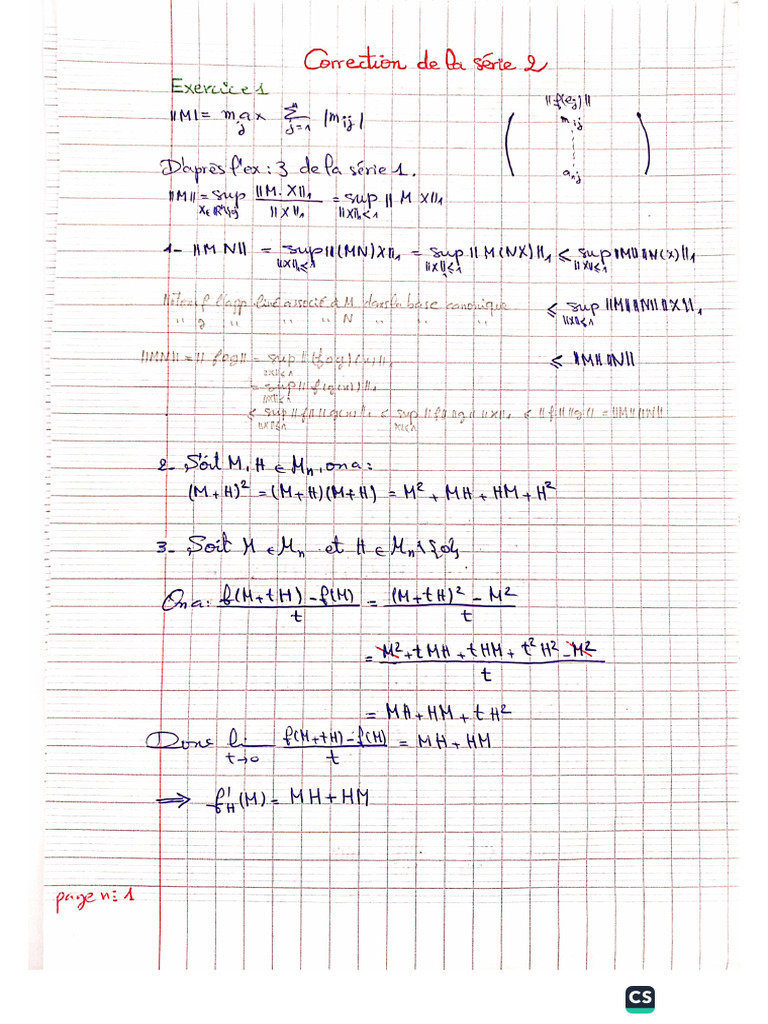 Correction de la série 2
Exercice 1
||M|| = max_j Σ_{j=1}^n |m_ij|
||f(e_j)||
m_ij
a_nj
D'après l'ex: 3 de la série 1.
||M|| = sup_{X∈ℝⁿ\{0}} ||M.X||₁ / ||X||₁ = sup_{||X||₁≤1} ||M X||₁
1- ||M N|| = sup_{||X||₁≤1} ||(MN)X||₁ = sup_{||X||₁≤1} ||M(NX)||₁ ≤ sup_{||X||₁≤1} ||M|| ||N(X)||₁
≤ sup_{||X||₁≤1} ||M|| ||N|| ||X||₁
≤ ||M|| ||N||
f l'app liné associé à M dans la base canonique
" g " " " N " " "
||MN|| = ||fog|| = sup_{||X||≤1} ||(fog)(x)||₁
= sup_{||X||≤1} ||f(g(x))||₁
≤ sup_{||X||≤1} ||f|| ||g(x)||₁ ≤ sup_{||X||≤1} ||f|| ||g|| ||x||₁ ≤ ||f|| ||g|| = ||M|| ||N||
2- Soit M, H ∈ M_n, on a:
(M+H)² = (M+H)(M+H) = M² + MH + HM + H²
3- Soit M ∈ M_n et H ∈ M_n\{0},
On a: (f(M+tH) - f(M)) / t = ((M+tH)² - M²) / t
= (M² + tMH + tHM + t²H² - M²) / t
= MH + HM + tH²
Donc lim_{t→0} (f(M+tH) - f(M)) / t = MH + HM
⟹ f'_H(M) = MH + HM
page n: 1
CS